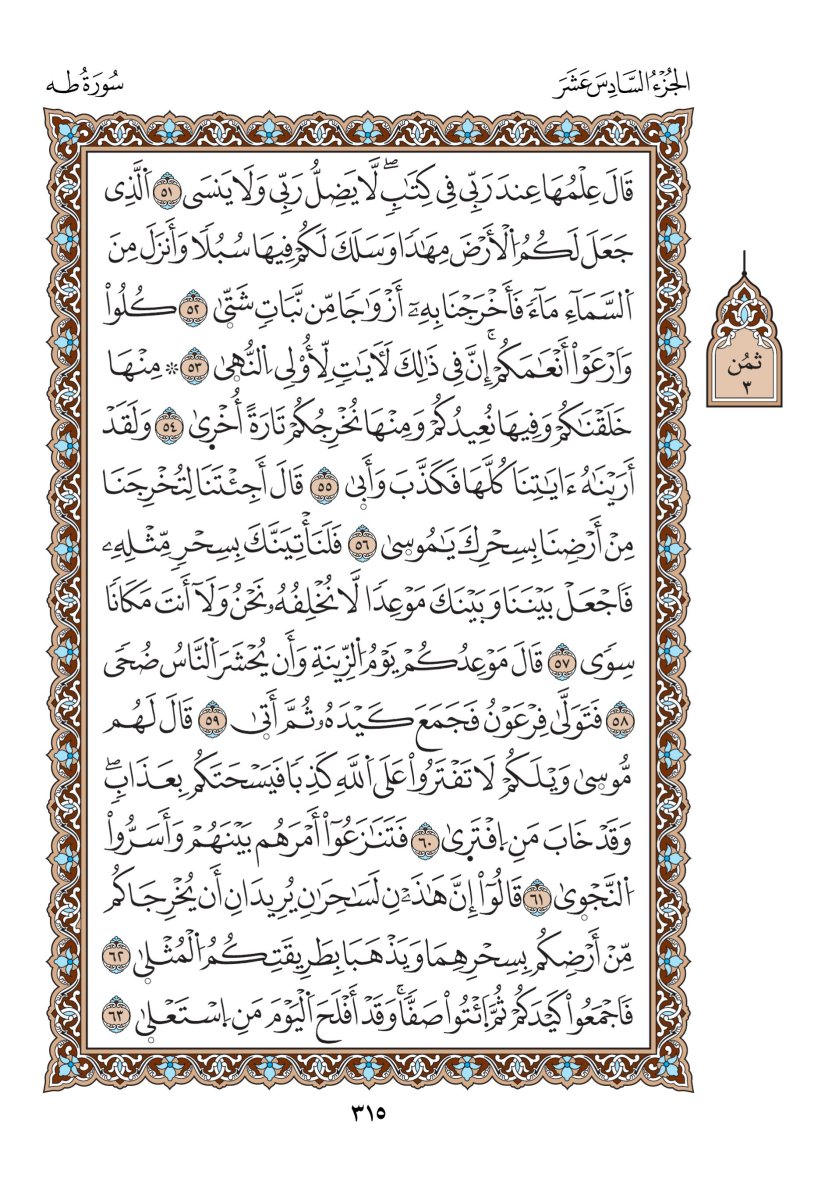 الجُزْءُ السَّادِسَ عَشَرَ
سُورَةُ طه
قَالَ عِلْمُهَا عِندَ رَبِّي فِي كِتَٰبٍۖ لَّا يَضِلُّ رَبِّي وَلَا يَنسَى ٥١ اَلَّذِي
جَعَلَ لَكُمُ اُلْأَرْضَ مِهَٰدًا وَسَلَكَ لَكُمْ فِيهَا سُبُلًا وَأَنزَلَ مِنَ
اَلسَّمَآءِ مَآءً فَأَخْرَجْنَا بِهِۦٓ أَزْوَٰجًا مِّن نَّبَاتٍ شَتّ۪ىٰ ٥٢ كُلُواْ
وَارْعَوْاْ أَنْعَٰمَكُمْۚ إِنَّ فِي ذَٰلِكَ لَأٓيَٰتٍ لِّأُوْلِي اِلنُّه۪ىٰ ٥٣ ۞ مِنْهَا
خَلَقْنَٰكُمْ وَفِيهَا نُعِيدُكُمْ وَمِنْهَا نُخْرِجُكُمْ تَارَةً أُخْر۪ىٰ ٥٤ وَلَقَدْ
أَرَيْنَٰهُ ءَايَٰتِنَا كُلَّهَا فَكَذَّبَ وَأَب۪ىٰ ٥٥ قَالَ أَجِئْتَنَا لِتُخْرِجَنَا
مِنْ أَرْضِنَا بِسِحْرِكَ يَٰمُوس۪ىٰ ٥٦ فَلَنَأْتِيَنَّكَ بِسِحْرٍ مِّثْلِهِۦ
فَاَجْعَلْ بَيْنَنَا وَبَيْنَكَ مَوْعِدًا لَّا نُخْلِفُهُۥ نَحْنُ وَلَآ أَنتَ مَكَانًا
سِوًى ٥٧ قَالَ مَوْعِدُكُمْ يَوْمُ اُلزِّينَةِ وَأَن يُحْشَرَ اَلنَّاسُ ضُحًى
٥٨ فَتَوَلَّىٰ فِرْعَوْنُ فَجَمَعَ كَيْدَهُۥ ثُمَّ أَت۪ىٰ ٥٩ قَالَ لَهُم
مُّوس۪ىٰ وَيْلَكُمْ لَا تَفْتَرُواْ عَلَى اَللَّهِ كَذِبًا فَيَسْحَتَكُم بِعَذَابٍۖ
وَقَدْ خَابَ مَنِ اِفْتَر۪ىٰ ٦٠ فَتَنَٰزَعُوٓاْ أَمْرَهُم بَيْنَهُمْ وَأَسَرُّواْ
اُلنَّجْو۪ىٰ ٦١ قَالُوٓاْ إِنَّ هَٰذَيْنِ لَسَٰحِرَٰنِ يُرِيدَانِ أَن يُخْرِجَاكُم
مِّنْ أَرْضِكُم بِسِحْرِهِمَا وَيَذْهَبَا بِطَرِيقَتِكُمُ اُلْمُثْل۪ىٰ ٦٢
فَاَجْمَعُواْ كَيْدَكُمْ ثُمَّ اَئْتُواْ صَفًّاۚ وَقَدْ أَفْلَحَ اَلْيَوْمَ مَنِ اِسْتَعْل۪ىٰ ٦٣
ثمُن
٣
٣١٥